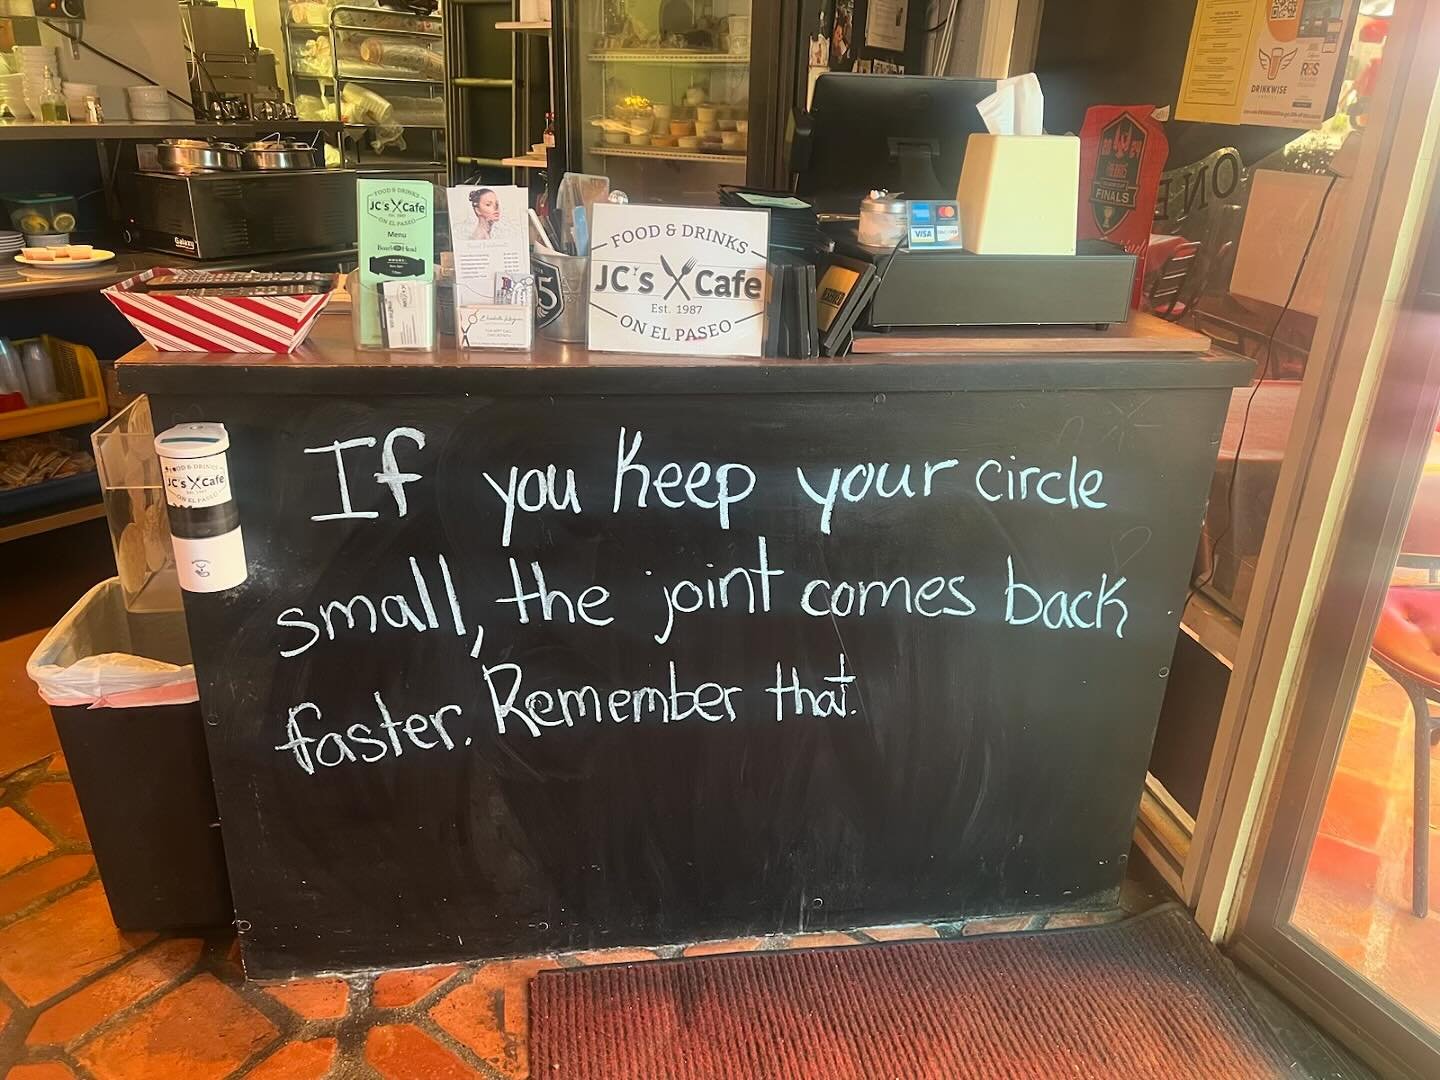 DRINKWISE
R8S
FINALS
ON
Galaxy
FOOD & DRINKS
JC's Cafe
Est. 1987
ON EL PASEO
Menu
Boar's Head
5
VISA
DISCOVER
FOOD & DRINKS
JC's Cafe
Est. 1987
ON EL PASEO
RESERVED
FOOD & DRINKS
JC's Cafe
ON EL PASEO
If you keep your circle
small, the joint comes back
faster. Remember that.